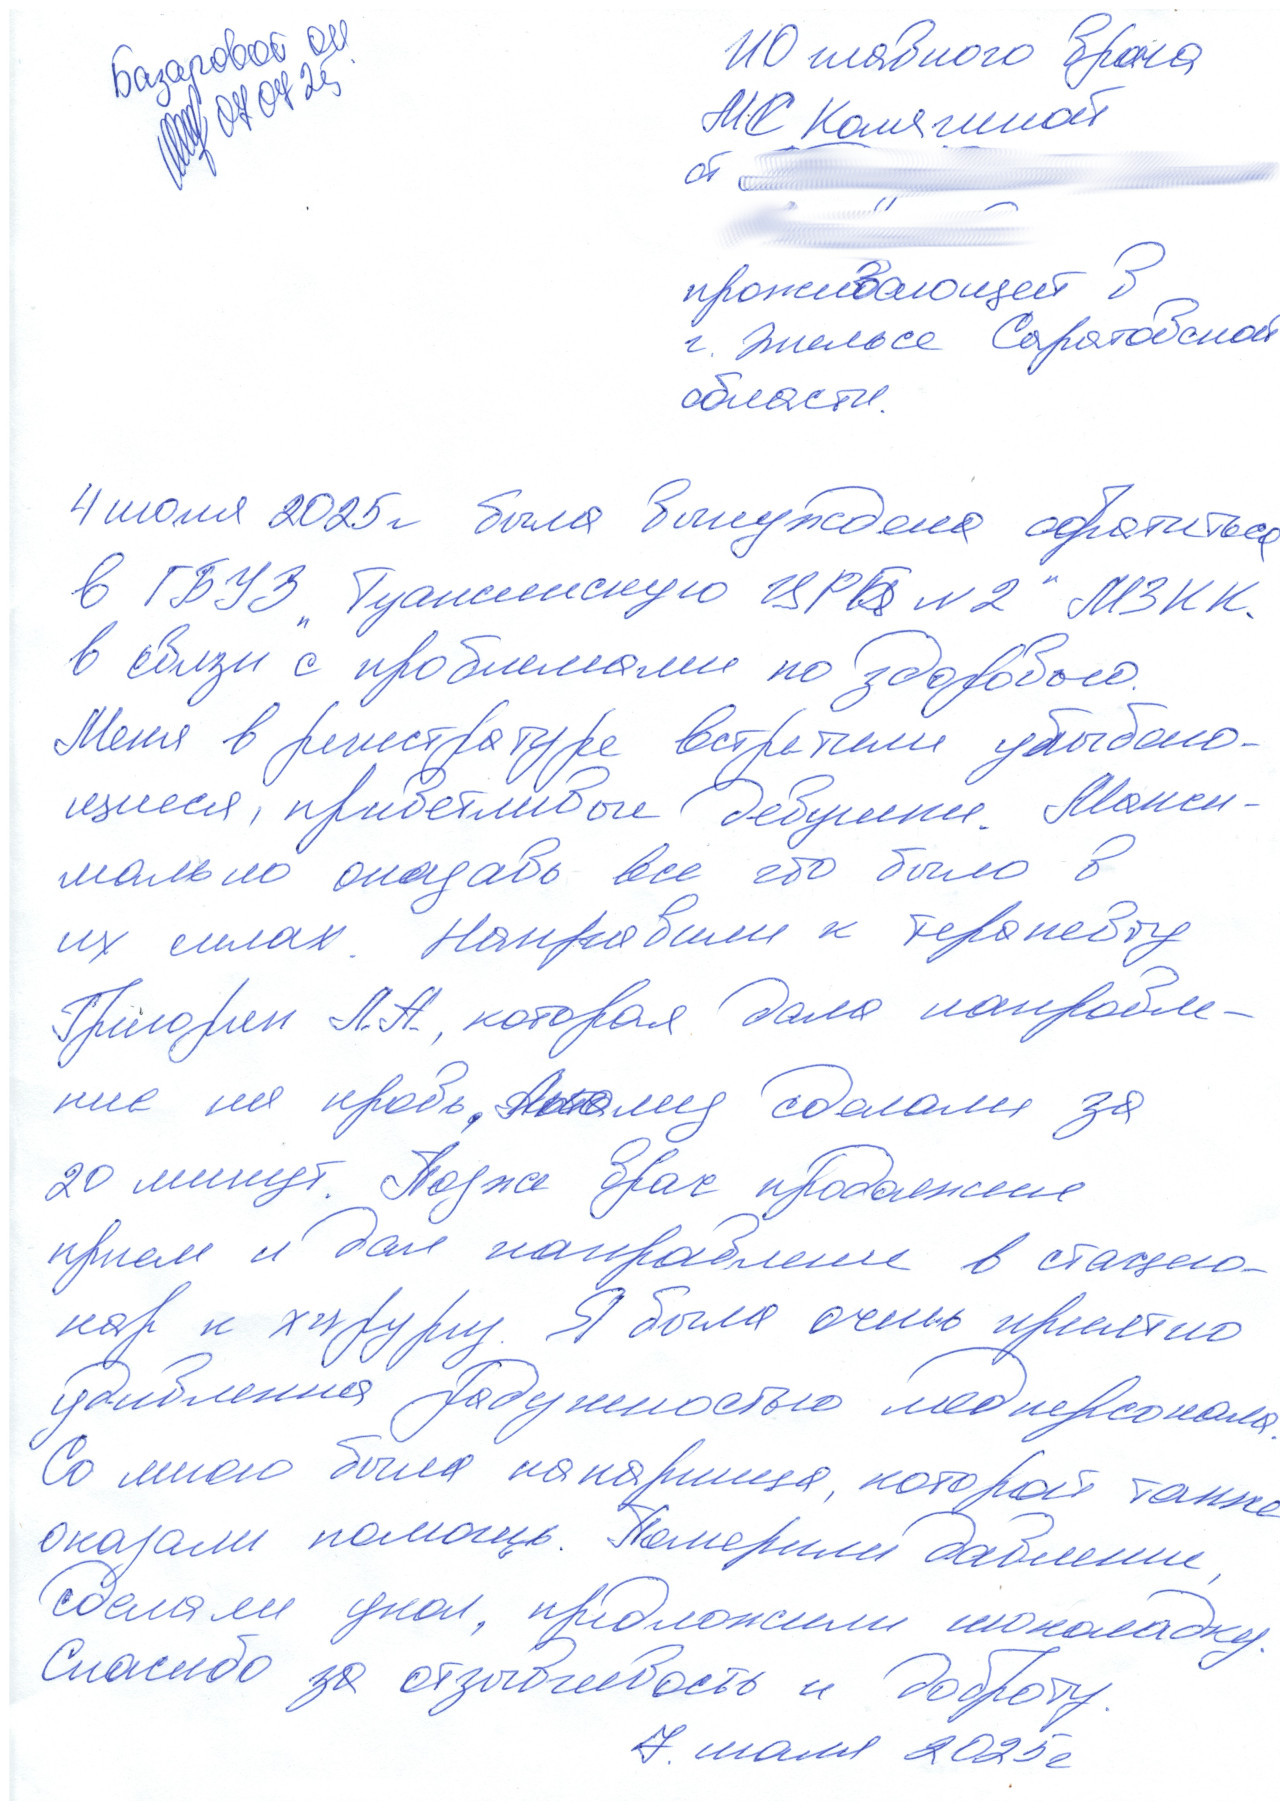 Базаровой ОИ.
07 07 25
ИО главного врача
М.С Колягиной
от
проживающей в
г. Энгельсе Саратовской
области.
4 июля 2025г была вынуждена обратиться
в ГБУЗ „Туапсинскую ЦРБ №2" МЗ КК.
в связи с проблемами по здоровью.
Меня в регистратуре встретили улыбаю-
щиеся, приветливые девушки. Макси-
мально оказавь все что было в
их силах. Направили к терапевту
Григорян А.А., которая дала направле-
ние на кровь, Анализ сделали за
20 минут. Позже врач продолжил
прием и дал направление в стацио-
нар к хирургу. Я была очень приятно
удивленна радужностью медперсонала.
Со мною была напарница, которой также
оказали помощь. Померили давление,
сделали укол, предложили шоколадку.
Спасибо за отзывчивость и доброту.
7. июля 2025г